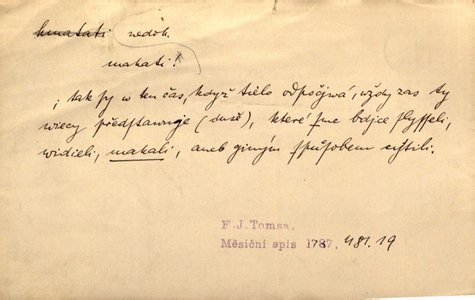 hmatati nedok.
makati!
; tak sy w ten čas, když tělo odpočjwá, wždy zas ty
wěcy předstawuge (duše), které sme bdjce slysseli,
widieli, makali, aneb giným spůsobem cýtili.
F. J. Tomsa,
Měsíční spis 1787, 481.19